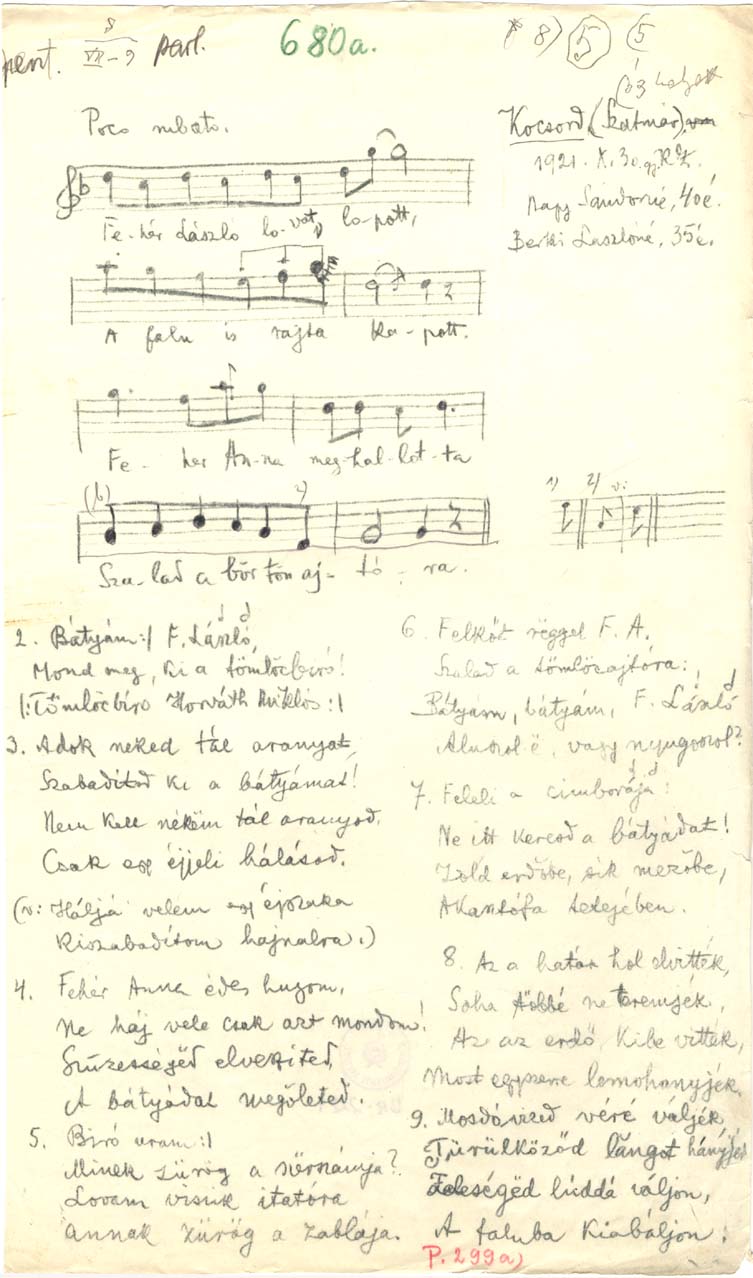 pent. 8 VII-9 parl. 680a. 8) 5 (5
Poco rubato.
Kocsord, (Szatmár)
1921. X. 30.
Nagy Sándorné, 40é.
Berki Lászlóné, 35é.
Fe-hér László lo-vat lo-pott,
A falu is rajta ka-pott.
Fe- hér An-na meg-hal-lot-ta
(b) 2)
1) 2) v:
Sza-lad a bör tön aj- tó - ra.
2. Bátyám :/ F. László,
Mond meg, ki a tömlöcbiró!
/: Tömlöcbíró Horváth Miklós :/
3. Adok neked tál aranyat,
Szabadítsd ki a bátyámat!
Nem kell nékëm tál aranyod,
Csak egy éjjeli hálásod.
(v: Háljá velem egy éjszaka
Kiszabadítom hajnalra.)
4. Fehér Anna édes hugom,
Ne háj vele csak azt mondom!
Szüzességëd elveszited,
A bátyádat megöleted.
5. Biró uram :/
Minek zürög a
Lovam viszik itatóra
Annak zürög a zablája.
6. Felkőt rëggel F. A.
Szalad a tömlöcajtóra:
Bátyám, bátyám, F. László
Aluszol ë, vagy nyugoszol?
7. Feleli a cimborája:
Ne itt keresd a bátyádat!
Zöld erdőbe, sik mezőbe,
Akasztófa tetejében.
8. Az a határ hol elvitték,
Soha többé ne teremjék,
Az az erdő, kibe vitték,
Most egyszerre lemohanyjék.
9. Mosdóvized véré váljék,
Türülköződ lángot hányjék
Feleségëd lúddá váljon,
A faluba kiabáljon.
P. 299a)